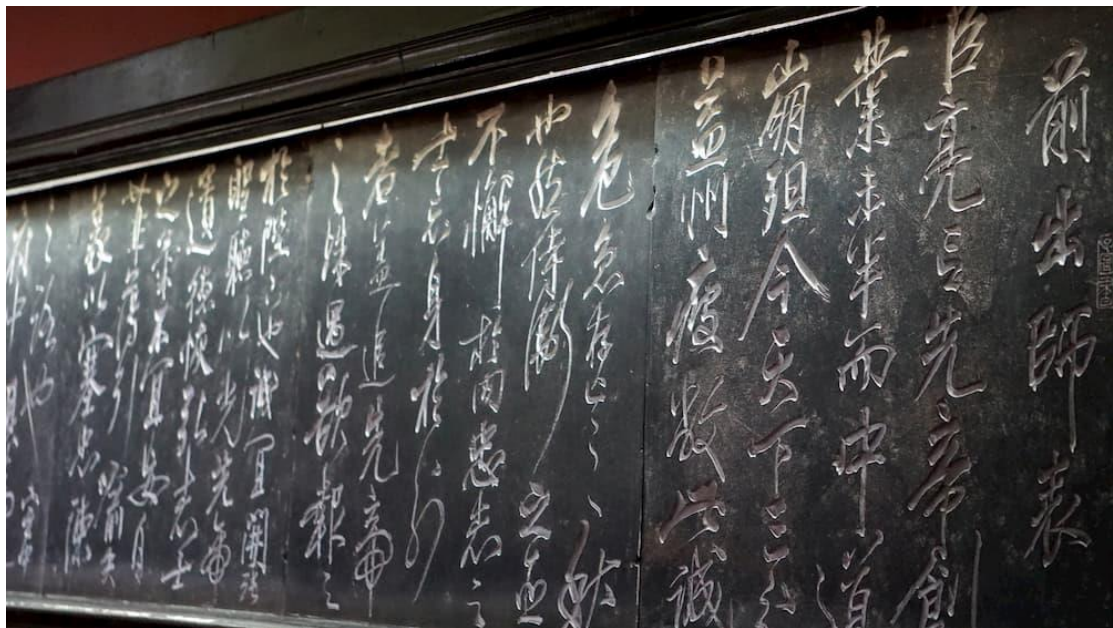 前出師表
臣亮言先帝創
業未半而中道
崩殂今天下三分
曰益州疲敝此誠
危急存亡之秋
也然侍衛之臣
不懈於内忠志之
士忘身於外
者蓋追先帝
之殊遇欲報之
於陛下也誠宜開張
聖聽以光先帝
遺德恢弘志士
之氣不宜妄自
菲薄引喻失
義以塞忠諫
之路也宮